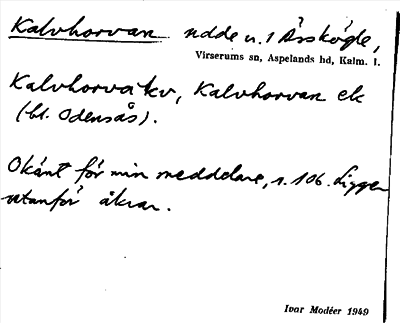 Kalvhorvan udde u. 1 Årsskögle,
Virserums sn, Aspelands hd, Kalm. l.
Kalvhorva kv, Kalvhorvan ek
(bl. Odensås).
Okänt för min meddelare, s. 106. Ligger
utanför åkrar.
Ivar Modéer 1949